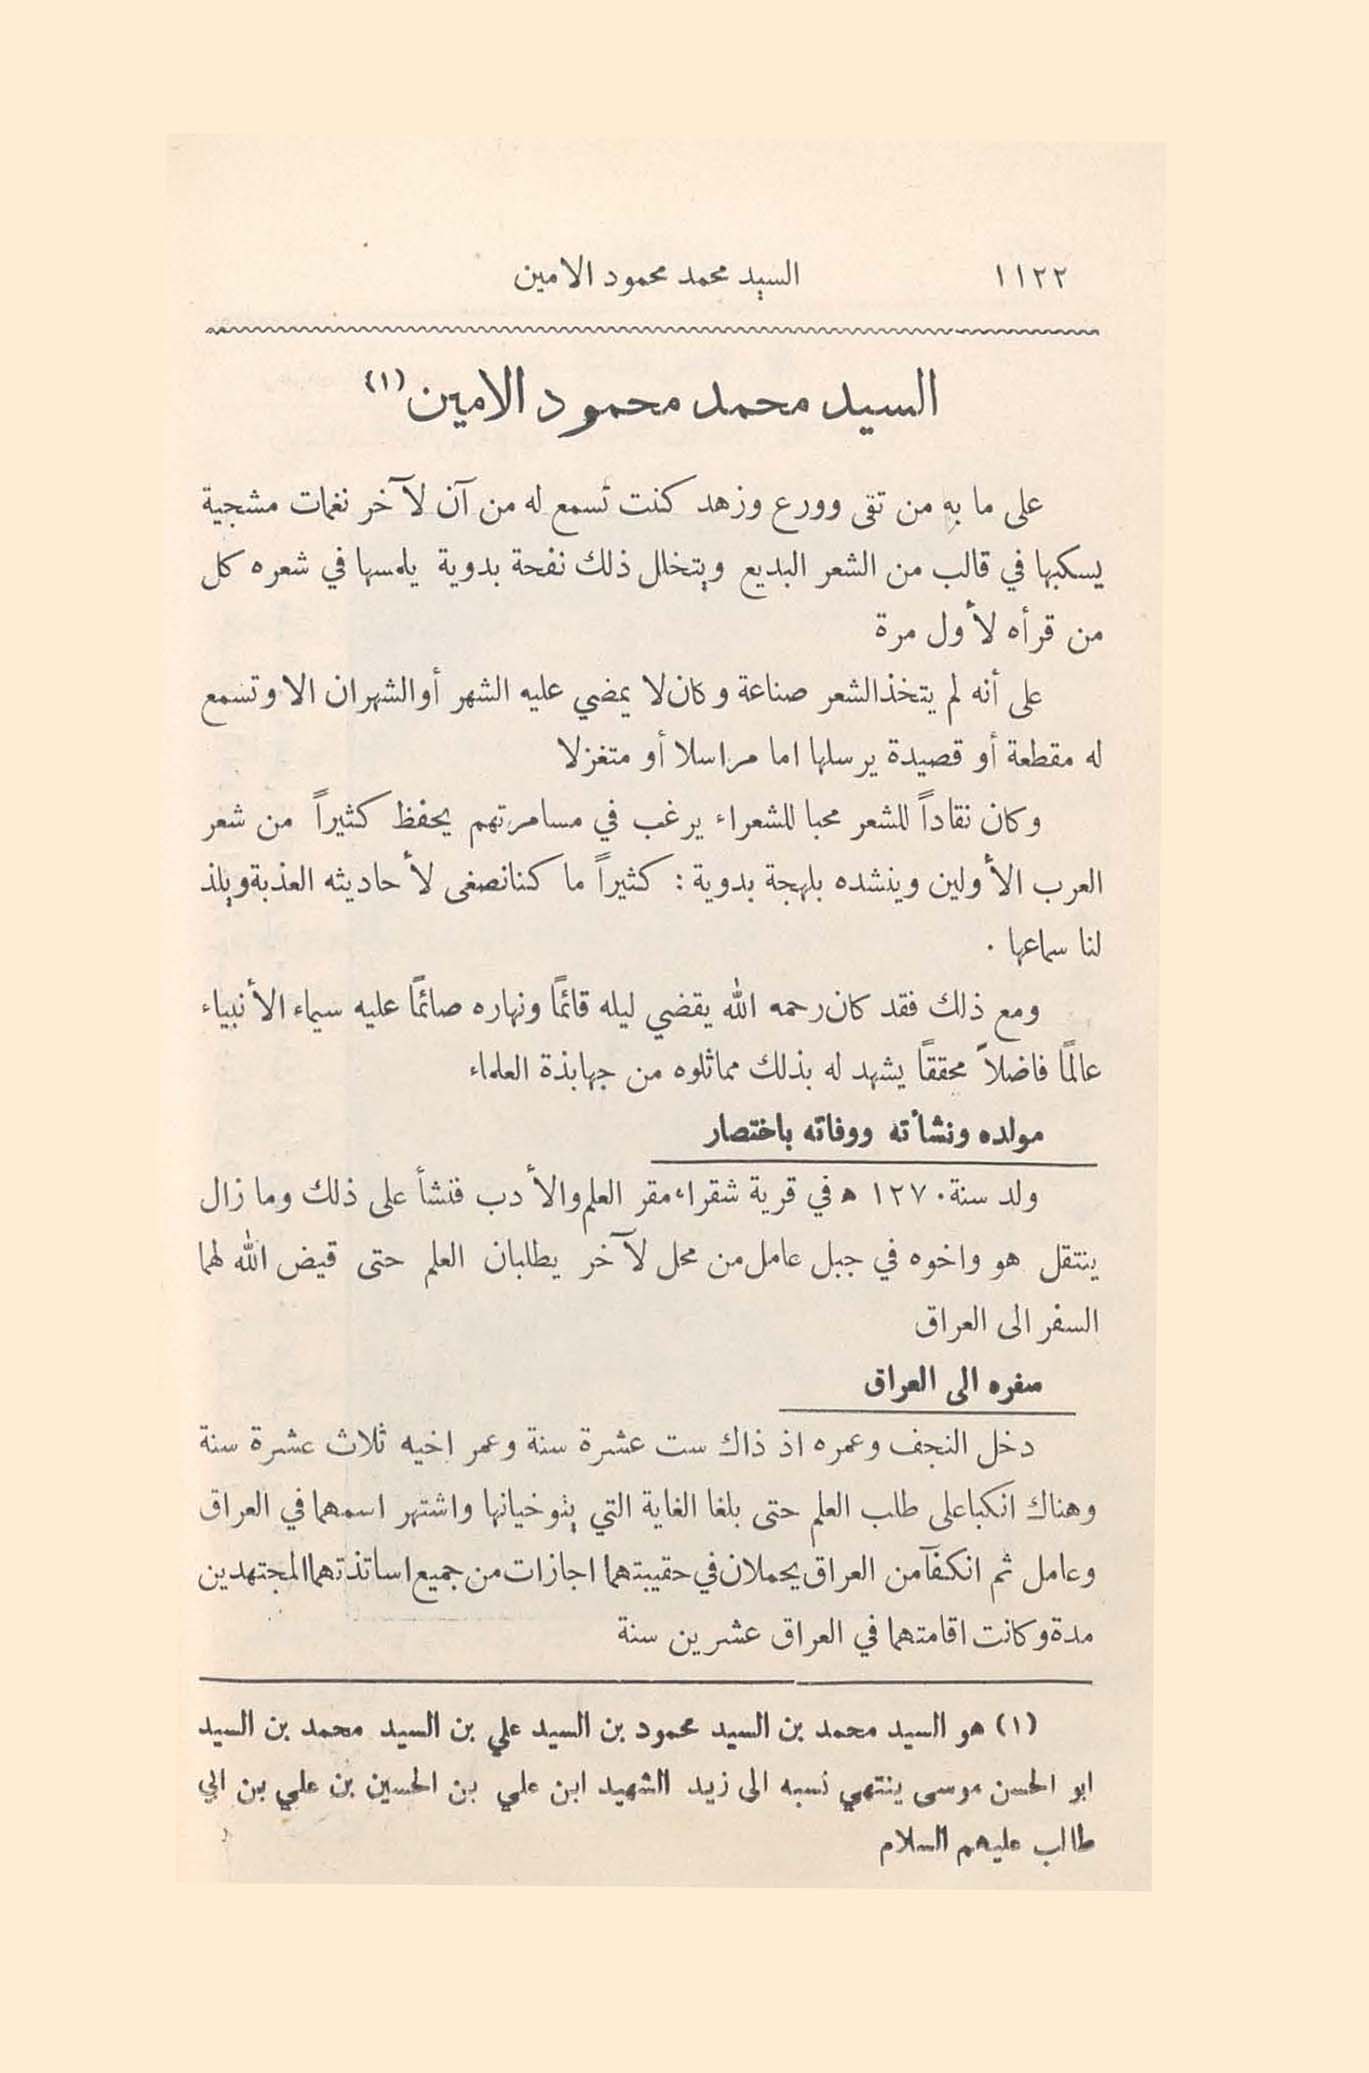 ١١٢٢ السيد محمد محمود الامين
السيد محمد محمود الامين (١)
على ما به من تقى وورع وزهد كنت تسمع له من آن لآخر نغمات مشجية
يسكبها في قالب من الشعر البديع ويتخلل ذلك نفحة بدوية يلمسها في شعره كل
من قرأه لأول مرة
على أنه لم يتخذ الشعر صناعة وكان لا يمضي عليه الشهر أو الشهران الا وتسمع
له مقطعة أو قصيدة يرسلها اما مراسلا أو متغزلا
وكان نقاداً للشعر محبا للشعراء يرغب في مسامرتهم يحفظ كثيراً من شعر
العرب الأولين وينشده بلهجة بدوية : كثيراً ما كنا نصغى لأحاديثه العذبة ويلذ
لنا سماعها .
ومع ذلك فقد كان رحمه الله يقضي ليله قائمًا ونهاره صائمًا عليه سيماء الأنبياء
عالمًا فاضلاً محققاً يشهد له بذلك مماثلوه من جهابذة العلماء
مولده ونشأته ووفاته باختصار
ولد سنة ١٢٧٠ ه في قرية شقراء مقر العلم والأدب فنشأ على ذلك وما زال
ينتقل هو واخوه في جبل عامل من محل لآخر يطلبان العلم حتى قيض الله لهما
السفر الى العراق
سفره الى العراق
دخل النجف وعمره اذ ذاك ست عشرة سنة وعمر اخيه ثلاث عشرة سنة
وهناك انكبا على طلب العلم حتى بلغا الغاية التي يتوخيانها واشتهر اسمهما في العراق
وعامل ثم انكفآ من العراق يحملان في حقيبتهما اجازات من جميع اساتذتهما المجتهدين
مدة وكانت اقامتهما في العراق عشرين سنة
(١) هو السيد محمد بن السيد محمود بن السيد علي بن السيد محمد بن السيد
ابو الحسن موسى ينتهي نسبه الى زيد الشهيد ابن علي بن الحسين بن علي بن ابي
طالب عليهم السلام